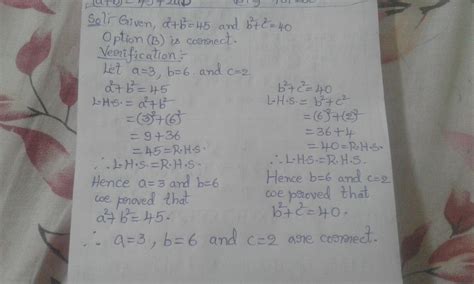 Sol: Given, a²+b²=45 and b²+c²=40
Option (B) is correct.
Verification:-
Let a=3, b=6 and c=2
a²+b²=45
L.H.S.= a²+b²
=(3)²+(6)²
= 9+36
=45=R.H.S.
∴ L.H.S.=R.H.S.
Hence a=3 and b=6
we proved that
a²+b²=45.
b²+c²=40
L.H.S.= b²+c²
=(6)²+(2)²
=36+4
=40=R.H.S.
∴ L.H.S.=R.H.S.
Hence b=6 and c=2
we proved that
b²+c²=40.
∴ a=3, b=6 and c=2 are correct.